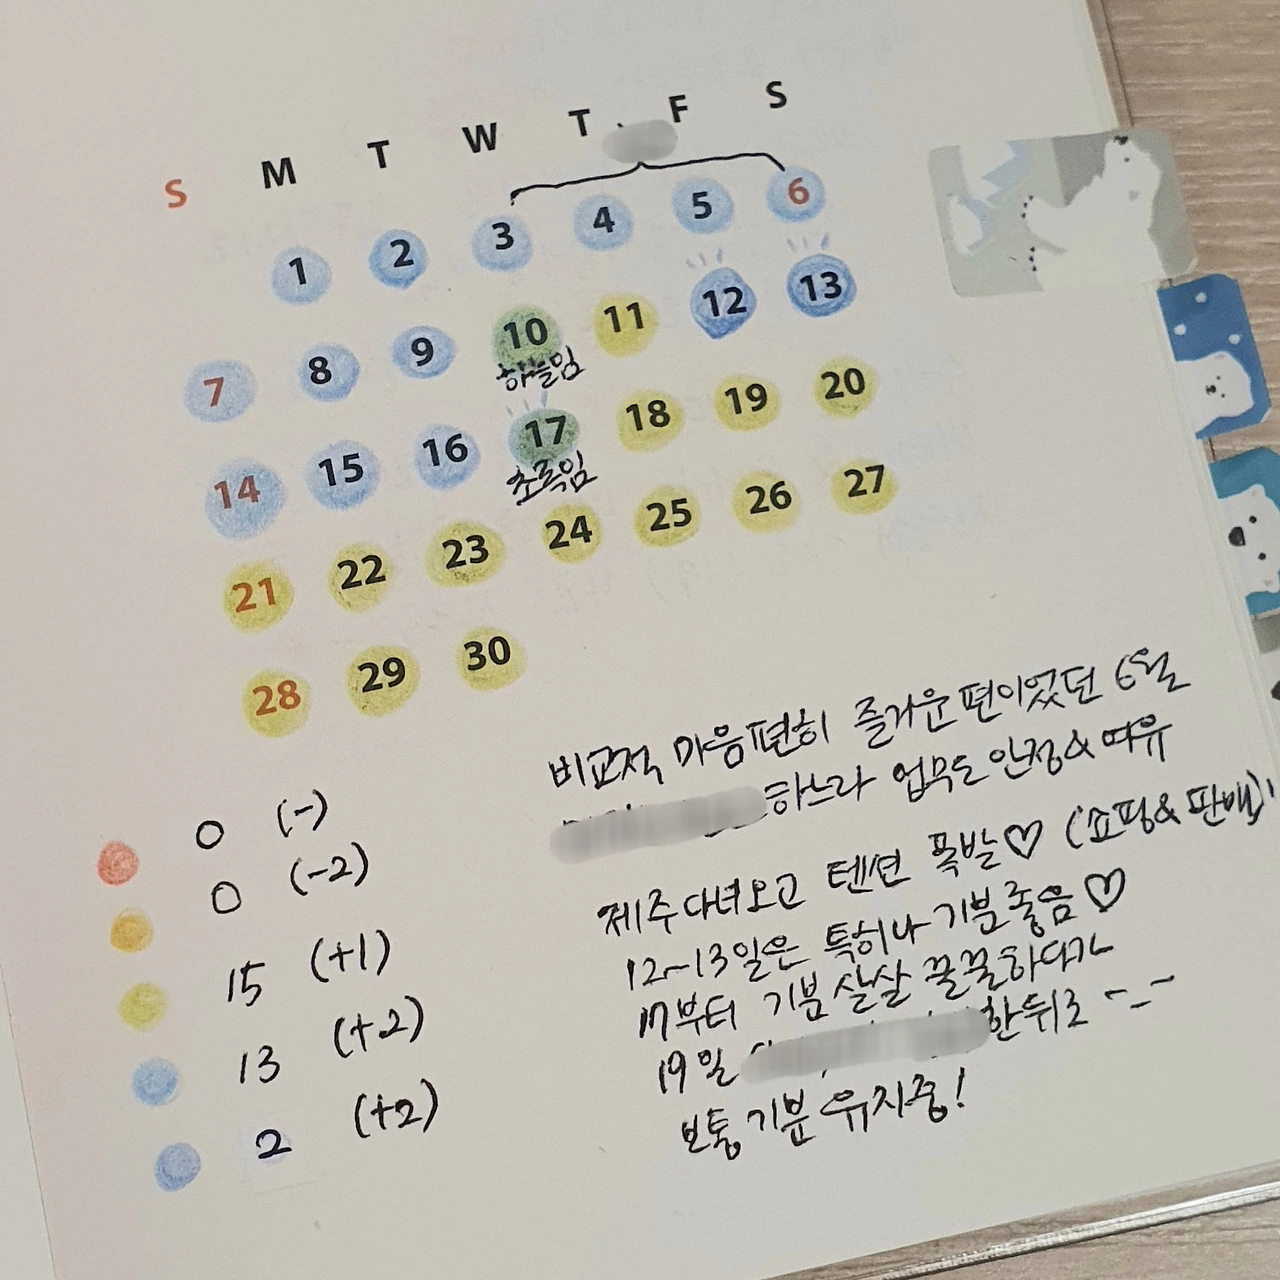 S M T W T F S
1 2 3 4 5 6
7 8 9 10 11 12 13
하늘임
14 15 16 17 18 19 20
초록임
21 22 23 24 25 26 27
28 29 30
0 (-)
0 (-2)
15 (+1)
13 (+2)
2 (+2)
비교적 마음편히 즐거운 편이었던 6월
하느라 업무도 안정& 여유
제주다녀오고 텐션 폭발♡ (쇼핑&판매)
12~13일은 특히나 기분좋음♡
17부터 기분 살살 꿀꿀하다가
19일 한뒤로 ~_~
보통기분 유지중!